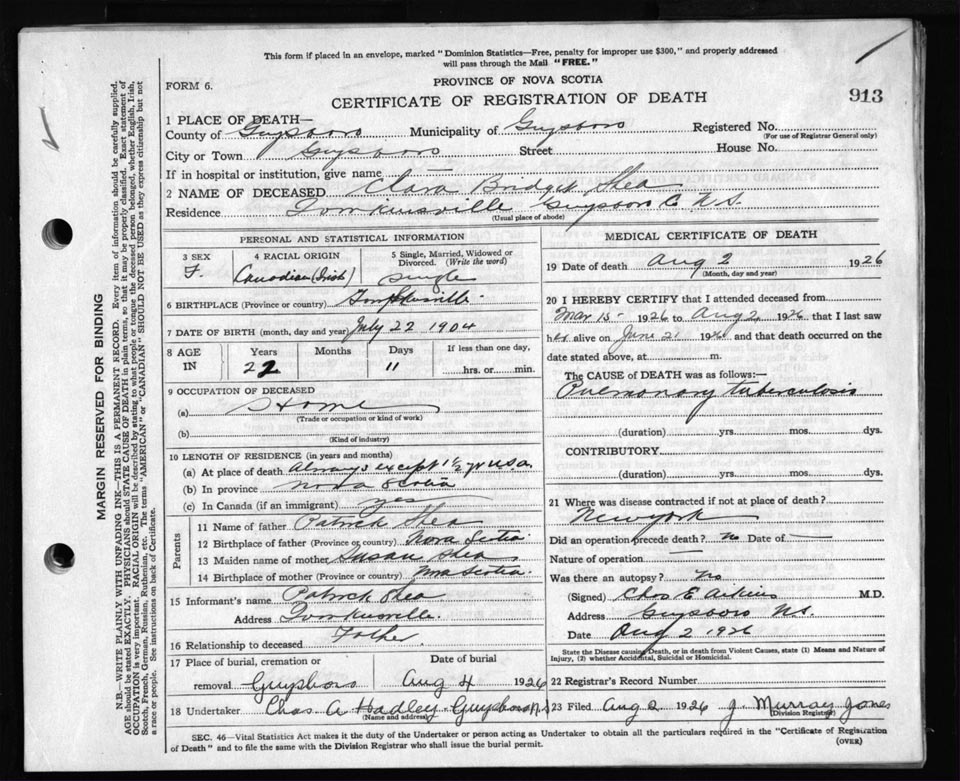 This form if placed in an envelope, marked "Dominion Statistics—Free, penalty for improper use $300," and properly addressed
will pass through the Mail "FREE."
FORM 6.
PROVINCE OF NOVA SCOTIA
CERTIFICATE OF REGISTRATION OF DEATH
913
1 PLACE OF DEATH—
County of Guysboro Municipality of Guysboro Registered No.
(For use of Registrar General only)
City or Town Guysboro Street House No.
If in hospital or institution, give name —
2 NAME OF DECEASED Clara Bridget Shea
Residence Tomkinsville Guysboro Co. N.S.
(Usual place of abode)
PERSONAL AND STATISTICAL INFORMATION
3 SEX F.
4 RACIAL ORIGIN Canadian (Irish)
5 Single, Married, Widowed or Divorced. (Write the word) single
6 BIRTHPLACE (Province or country)
7 DATE OF BIRTH (month, day and year) July 22 1904
8 AGE IN Years Months Days If less than one day,
22 11 hrs. or min.
9 OCCUPATION OF DECEASED
(a) Home
(Trade or occupation or kind of work)
(b)
(Kind of industry)
10 LENGTH OF RESIDENCE (in years and months)
(a) At place of death Always except 1 1/2 yr U.S.A.
(b) In province Nova Scotia
(c) In Canada (if an immigrant) yes
Parents
11 Name of father Patrick Shea
12 Birthplace of father (Province or country) Nova Scotia
13 Maiden name of mother Susan Shea
14 Birthplace of mother (Province or country) Nova Scotia
15 Informant's name Patrick Shea
Address Tomkinsville
16 Relationship to deceased Father
17 Place of burial, cremation or removal Guysboro
Date of burial Aug 4 1926
18 Undertaker Chas A Hadley Guysboro N.S
(Name and address)
MEDICAL CERTIFICATE OF DEATH
19 Date of death Aug 2 1926
(Month, day and year)
20 I HEREBY CERTIFY that I attended deceased from
Mar 15 - 1926 to Aug 2, 1926 that I last saw
her alive on June 21 1926 and that death occurred on the
date stated above, at m.
The CAUSE OF DEATH was as follows:—
Pulmonary tuberculosis
(duration) yrs. mos. dys.
CONTRIBUTORY
(duration) yrs. mos. dys.
21 Where was disease contracted if not at place of death?
New York
Did an operation precede death? No Date of —
Nature of operation —
Was there an autopsy? No
(Signed) Chas E Aitkins M.D.
Address Guysboro N.S.
Date Aug 2 1926
State the Disease causing Death, or in death from Violent Causes, state (1) Means and Nature of
Injury, (2) whether Accidental, Suicidal or Homicidal.
22 Registrar's Record Number
23 Filed Aug 2 1926 J. Murray Jones
(Division Registrar)
SEC. 46—Vital Statistics Act makes it the duty of the Undertaker or person acting as Undertaker to obtain all the particulars required in the "Certificate of Registration
of Death" and to file the same with the Division Registrar who shall issue the burial permit.
(OVER)
MARGIN RESERVED FOR BINDING
N.B.—WRITE PLAINLY WITH UNFADING INK—THIS IS A PERMANENT RECORD. Every item of information should be carefully supplied.
AGE should be stated EXACTLY. PHYSICIANS should STATE CAUSE OF DEATH in plain terms, so that it may be properly classified. Exact statement of
OCCUPATION is very important. RACIAL ORIGIN will be described by stating to what people or tongue the deceased person belonged, whether English, Irish,
Scotch, French, German, Russian, Ruthenian etc. The terms "AMERICAN" or "CANADIAN" SHOULD NOT BE USED as they express citizenship but not
a race or people. See instructions on back of Certificate.